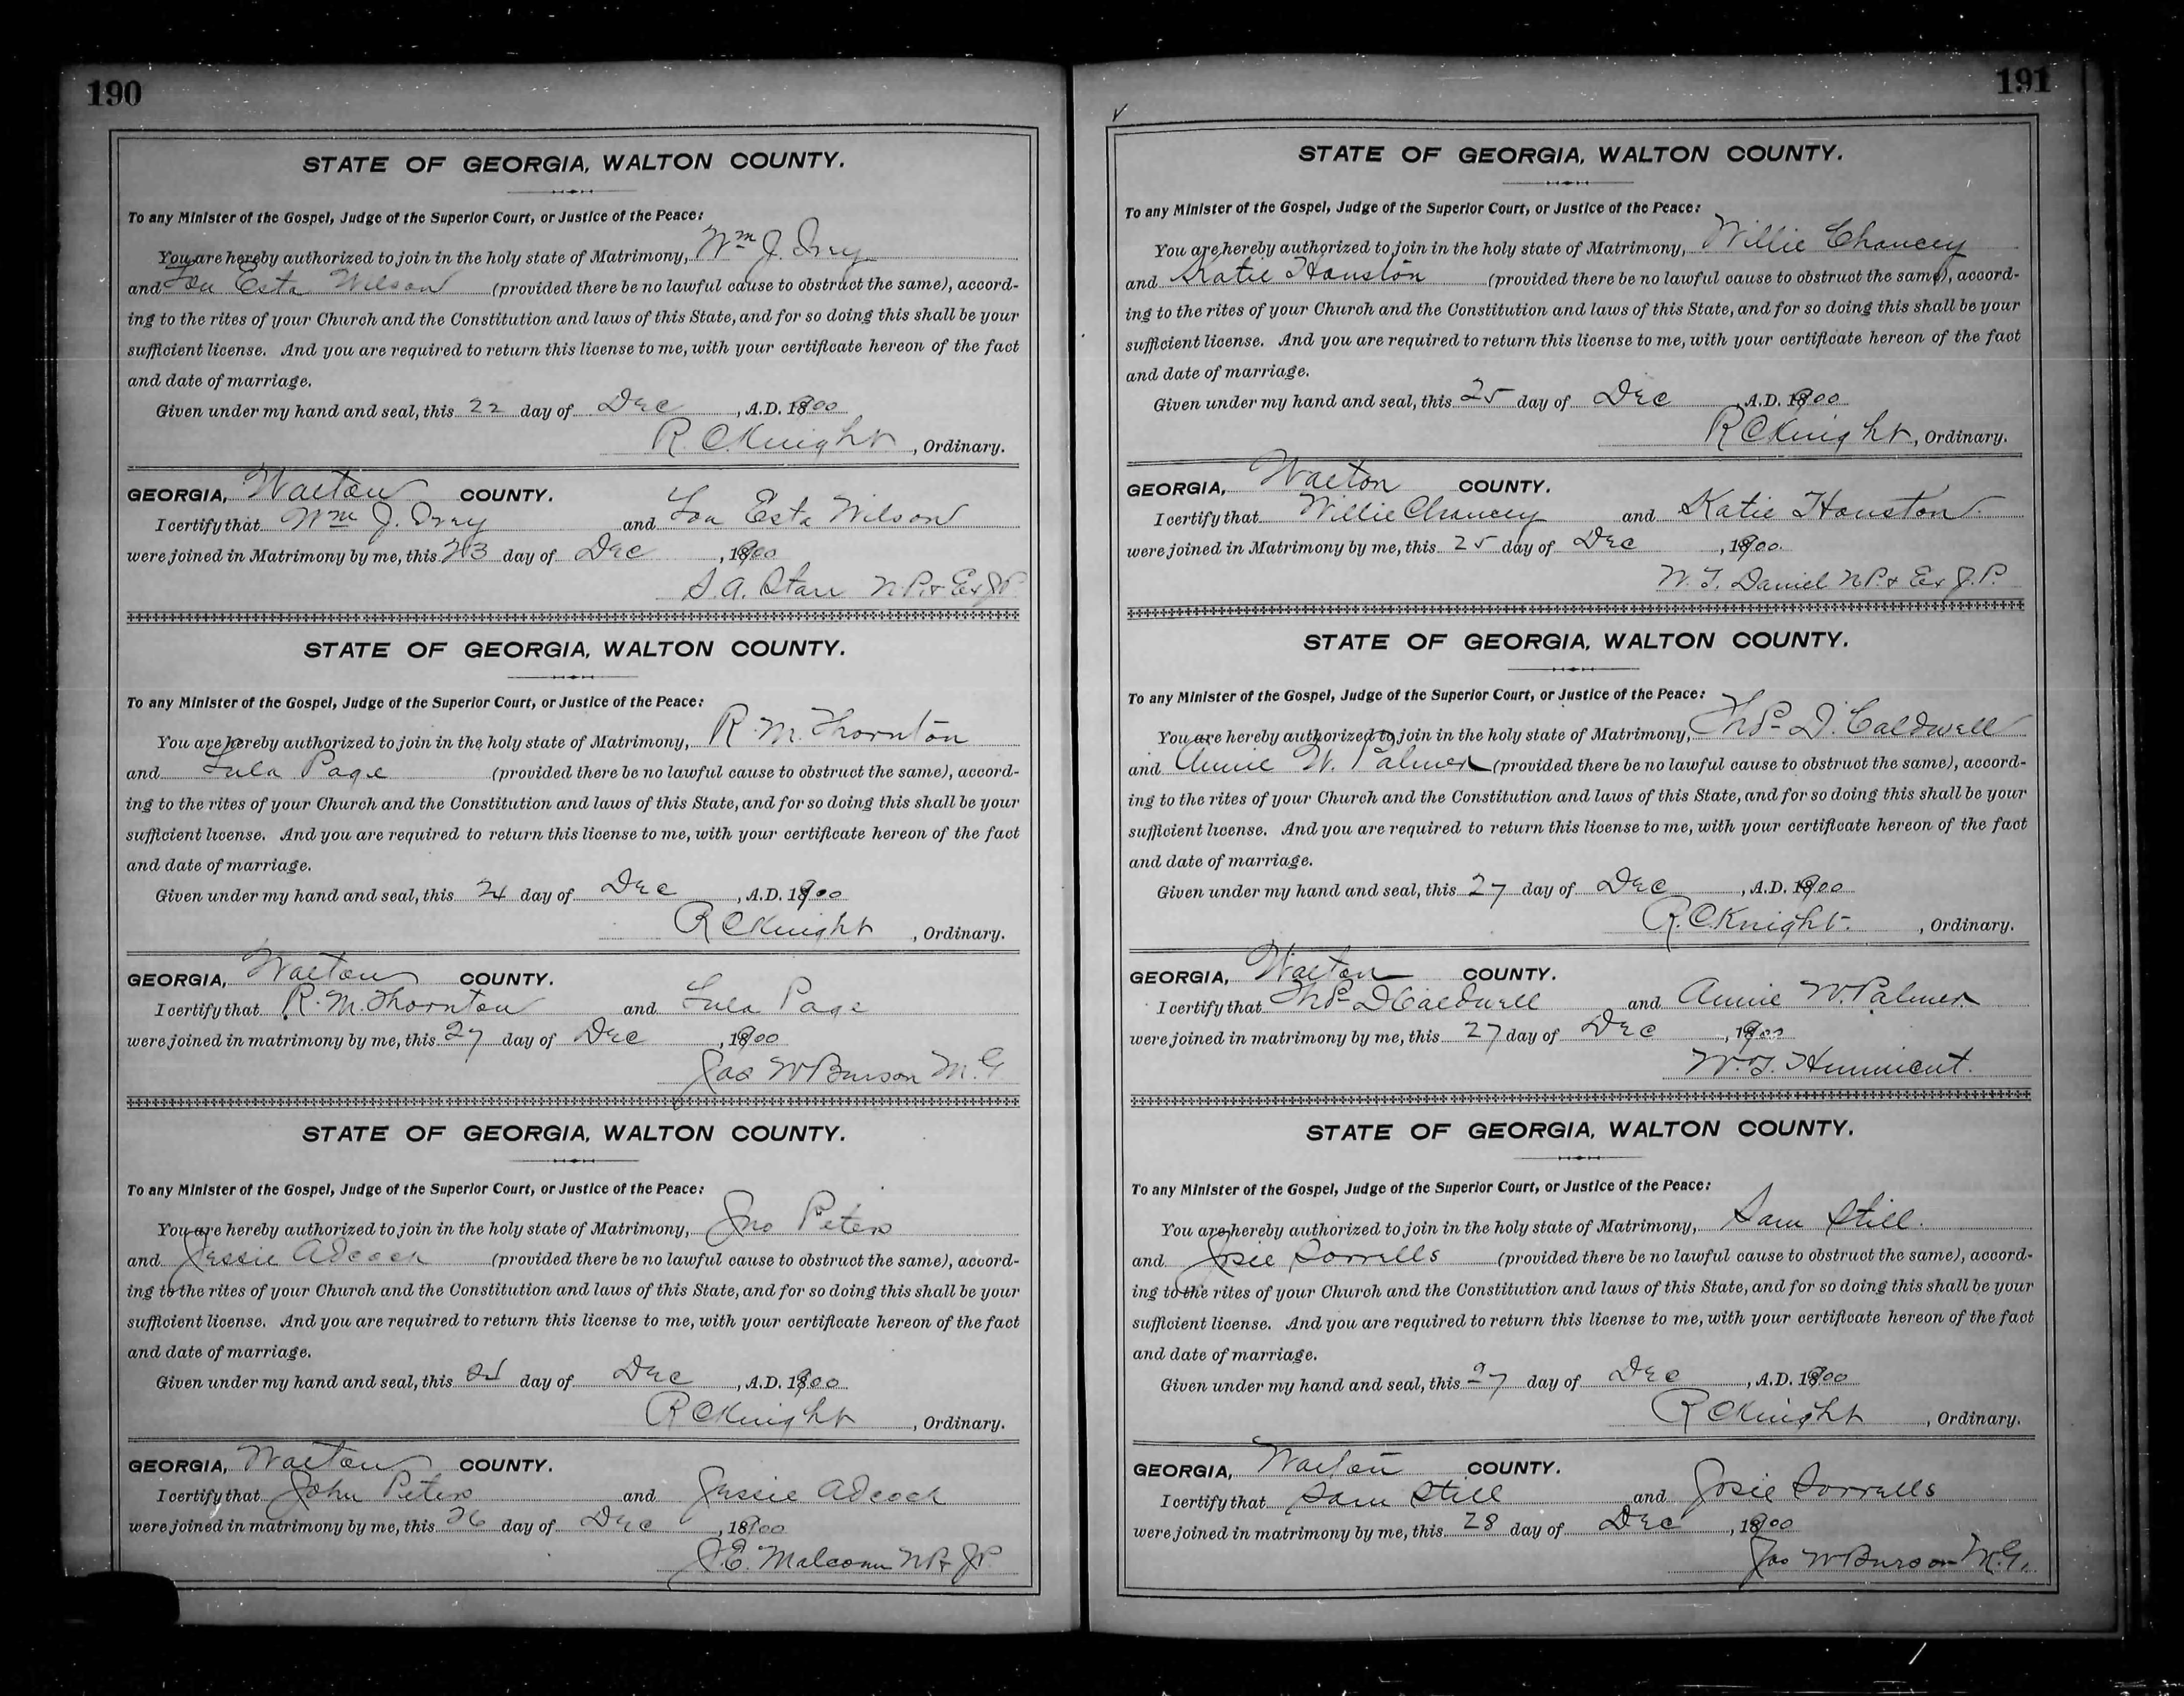 190
STATE OF GEORGIA, WALTON COUNTY.
To any Minister of the Gospel, Judge of the Superior Court, or Justice of the Peace:
You are hereby authorized to join in the holy state of Matrimony, Wm J.
and Lou Esta Wilson (provided there be no lawful cause to obstruct the same), accord-
ing to the rites of your Church and the Constitution and laws of this State, and for so doing this shall be your
sufficient license. And you are required to return this license to me, with your certificate hereon of the fact
and date of marriage.
Given under my hand and seal, this 22 day of Dec, A.D. 1900
R. C Knight, Ordinary.
GEORGIA, Walton COUNTY.
I certify that Wm J. and Lou Esta Wilson
were joined in Matrimony by me, this 23 day of Dec, 1900
S. A. Starr N.P. & Ex J P.
STATE OF GEORGIA, WALTON COUNTY.
To any Minister of the Gospel, Judge of the Superior Court, or Justice of the Peace:
You are hereby authorized to join in the holy state of Matrimony, R. M. Thornton
and Lula Page (provided there be no lawful cause to obstruct the same), accord-
ing to the rites of your Church and the Constitution and laws of this State, and for so doing this shall be your
sufficient license. And you are required to return this license to me, with your certificate hereon of the fact
and date of marriage.
Given under my hand and seal, this 24 day of Dec, A.D. 1900
R C Knight, Ordinary.
GEORGIA, Walton COUNTY.
I certify that R. M. Thornton and Lula Page
were joined in matrimony by me, this 27 day of Dec, 1900
Jas W Burson M. G
STATE OF GEORGIA, WALTON COUNTY.
To any Minister of the Gospel, Judge of the Superior Court, or Justice of the Peace:
You are hereby authorized to join in the holy state of Matrimony, Jno Peters
and Jessie Adcock (provided there be no lawful cause to obstruct the same), accord-
ing to the rites of your Church and the Constitution and laws of this State, and for so doing this shall be your
sufficient license. And you are required to return this license to me, with your certificate hereon of the fact
and date of marriage.
Given under my hand and seal, this 24 day of Dec, A.D. 1900
R C Knight, Ordinary.
GEORGIA, Walton COUNTY.
I certify that John Peters and Jessie Adcock
were joined in matrimony by me, this 26 day of Dec, 1900
J. E. Malcom N P & J P.
191
STATE OF GEORGIA, WALTON COUNTY.
To any Minister of the Gospel, Judge of the Superior Court, or Justice of the Peace:
You are hereby authorized to join in the holy state of Matrimony, Willie Chancey
and Katie Houston (provided there be no lawful cause to obstruct the same), accord-
ing to the rites of your Church and the Constitution and laws of this State, and for so doing this shall be your
sufficient license. And you are required to return this license to me, with your certificate hereon of the fact
and date of marriage.
Given under my hand and seal, this 25 day of Dec A.D. 1900
R C Knight, Ordinary.
GEORGIA, Walton COUNTY.
I certify that Willie Chancey and Katie Houston.
were joined in Matrimony by me, this 25 day of Dec, 1900.
W. T. Daniel N P. & Ex J. P.
STATE OF GEORGIA, WALTON COUNTY.
To any Minister of the Gospel, Judge of the Superior Court, or Justice of the Peace:
You are hereby authorized to join in the holy state of Matrimony, Thos D. Caldwell
and Annie W. Palmer (provided there be no lawful cause to obstruct the same), accord-
ing to the rites of your Church and the Constitution and laws of this State, and for so doing this shall be your
sufficient license. And you are required to return this license to me, with your certificate hereon of the fact
and date of marriage.
Given under my hand and seal, this 27 day of Dec, A.D. 1900
R. C. Knight., Ordinary.
GEORGIA, Walton COUNTY.
I certify that Thos D Caldwell and Annie W. Palmer
were joined in matrimony by me, this 27 day of Dec, 1900
W. T. Hunnicut.
STATE OF GEORGIA, WALTON COUNTY.
To any Minister of the Gospel, Judge of the Superior Court, or Justice of the Peace:
You are hereby authorized to join in the holy state of Matrimony, Sam Still.
and Josie Sorrells (provided there be no lawful cause to obstruct the same), accord-
ing to the rites of your Church and the Constitution and laws of this State, and for so doing this shall be your
sufficient license. And you are required to return this license to me, with your certificate hereon of the fact
and date of marriage.
Given under my hand and seal, this 27 day of Dec, A.D. 1900
R C Knight, Ordinary.
GEORGIA, Walton COUNTY.
I certify that Sam Still and Josie Sorrells
were joined in matrimony by me, this 28 day of Dec, 1900
Jas W Burson M. G.